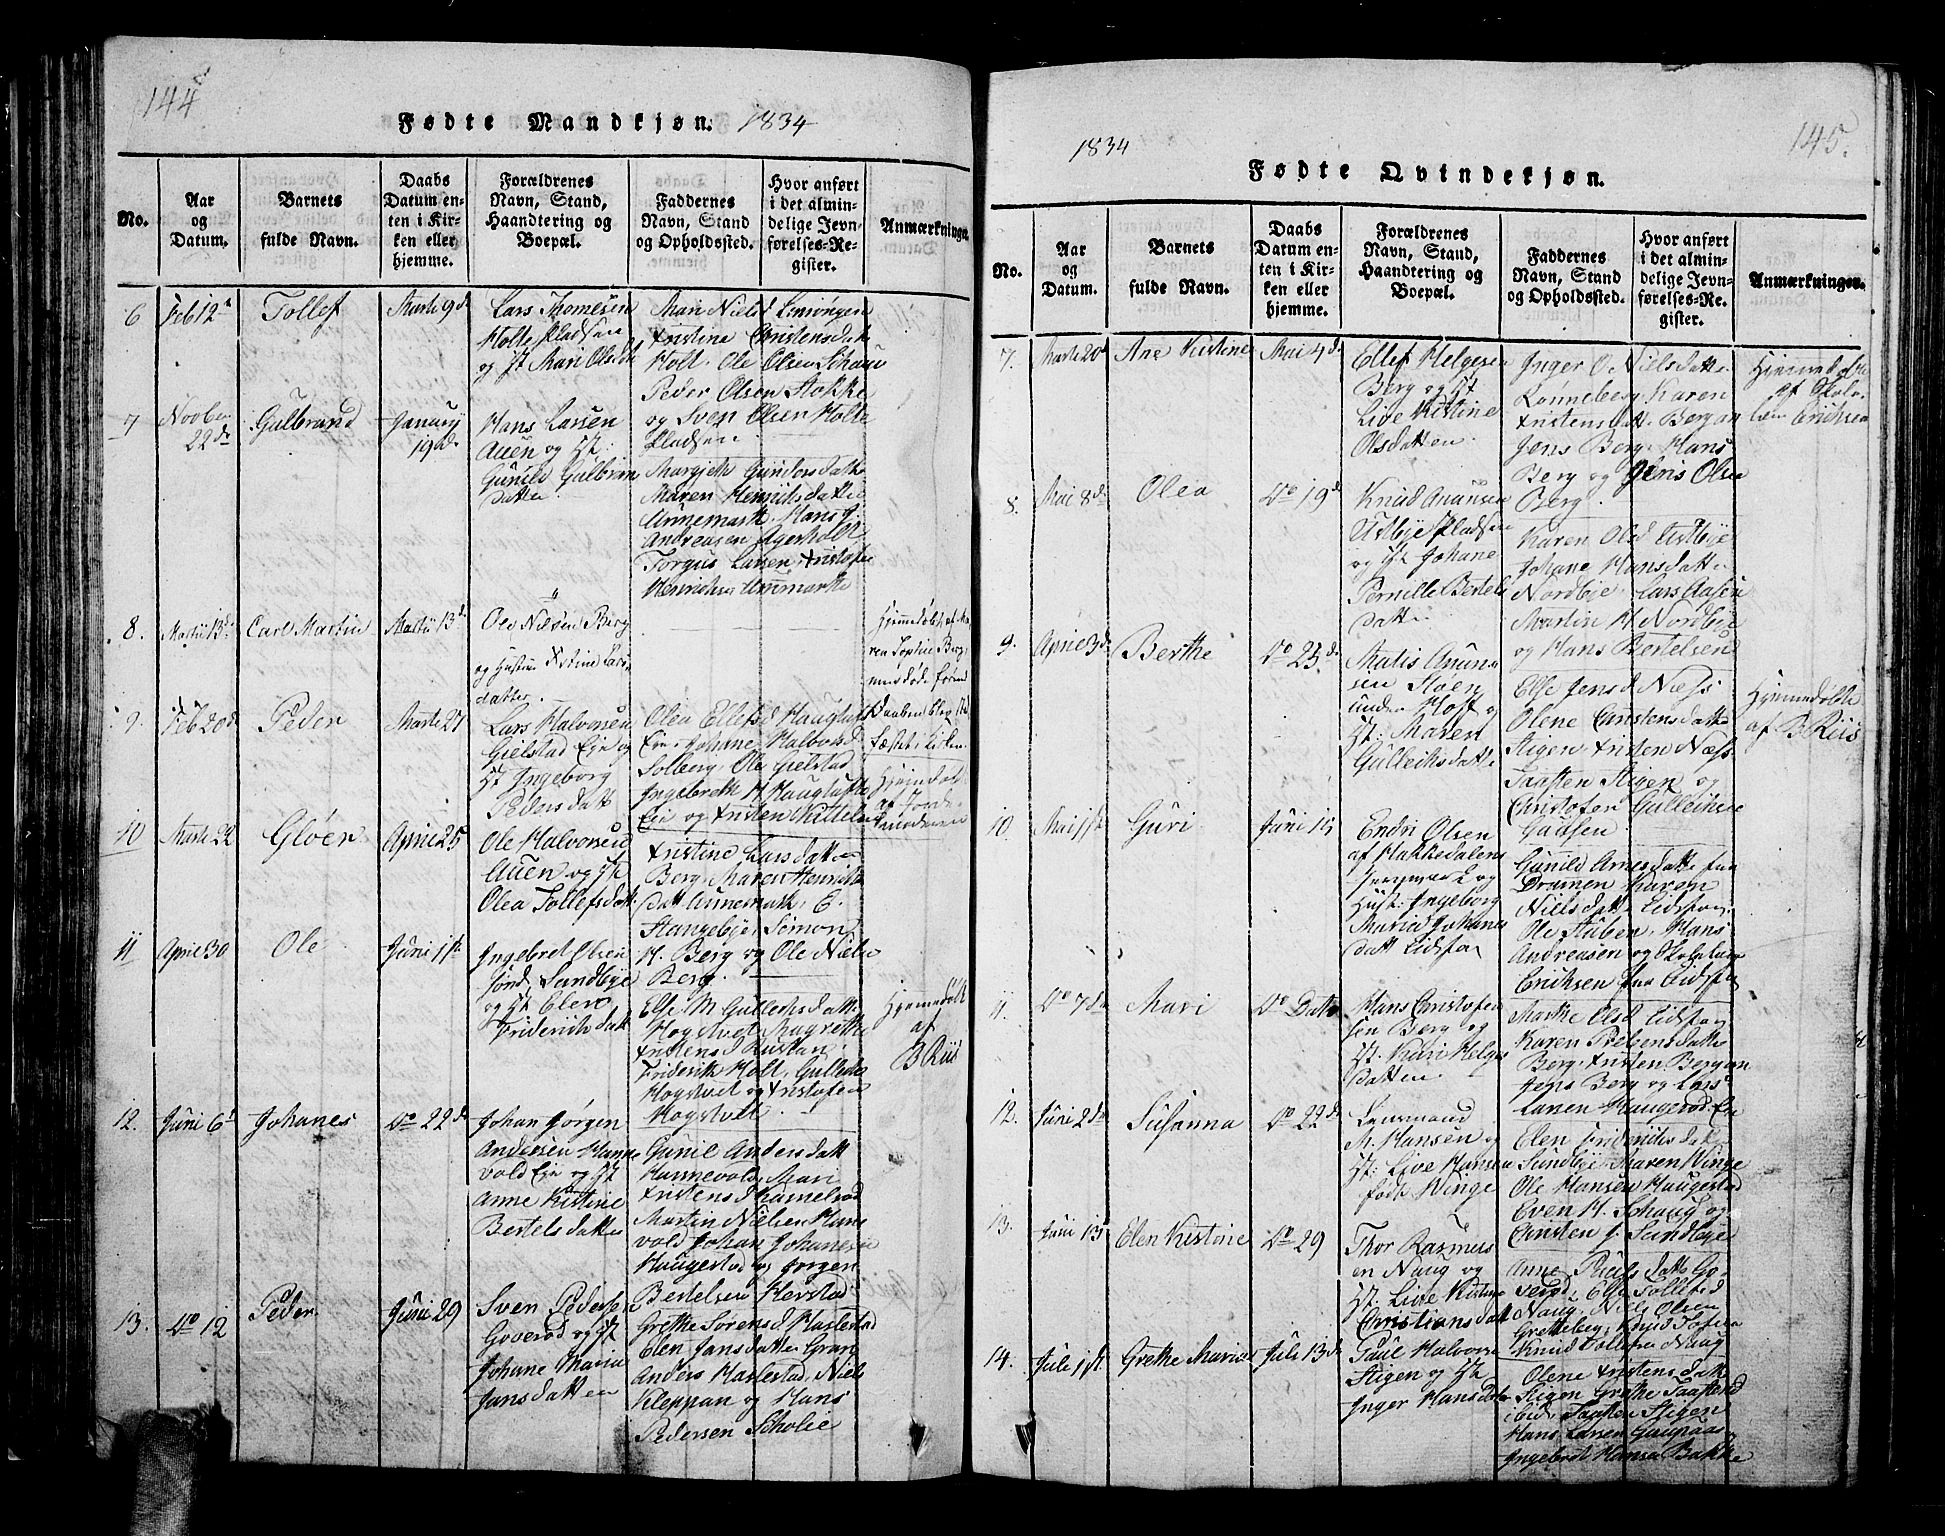 144
Fødte Mandkjøn. 1834
No.
Aar
og
Datum.
Barnets
fulde Navn.
Daabs
Datum en-
ten i Kir-
ken eller
hjemme.
Forældrenes
Navn, Stand,
Haandtering og
Boepæl.
Faddernes
Navn, Stand
og Opholdssted.
Hvor anført
i det almin-
delige Jevn-
førelses-Re-
gister.
Anmærkninger.
6
Feb 12
Tollef
Marts 9d
Lars Thomesen
Holte pladsen
og Hst Mari Olsdt
Mari Niels d
Kristine Christensdatt
Holt. Ole Olsen Schaue
Peder Olsen Stokke
og Sven Olsen Holte
pladsen
7
Novber
22d
Gulbrand
January
19d
Hans Larsen
Auen og Hst.
Gunild Gulbran
datter
Margjethe Gundersdatt
Maren Henriksdatter
Annemark. Hans J.
Andreasen Agerholt
Torgus Larsen, Kristofer
Henrichsen Annmarke
8.
Martii 13d
Carl Martin
Martii 13d
Ole Nielsen Berg
og Hustru Kristine Lars
datter.
Hjemmedøbt af Ma-
ren Sophie Berg,
9.
Feb 20d
Peder
Marts 27
Lars Halvorsen
Gjelstad Eie og
Hst Ingeborg
Peders datt
Olea Ellefsd Haugtuft
Eie. Johane Halvorsd
Solberg, Ole Gjelstad
Ingebreth H Haugtufte
Eie og Kristen Kittelsen
Hjemdøbt
af
10
Marts 22
Gløer
April 25
Ole Halvorsen
Auen og Hst
Olea Tollefsdatt
Kristine Larsdatter
Berg, Maren Henriks
datt Annemark, E.
Stangebye, Simon
H. Berg og Ole Niels
Berg.
11
April 30
Ole
Juni 1st
Ingebret Olsen
Sundbye
og Hst Elen
Friderichdatt
Else M Gulleksdatt
Hogstvet Magrethe
Kristensd Rustan
Friderik Holt, Gullek
Hogstvet og Kristofer
Hogstvet
Hjemmedøbt
af
B Riis
12.
Juni 6d
Johanes
do 22d
Johan Jørgen
Andersen Hanne-
vold Eie og Hst
Anne Kistine
Bertelsdatter
Gunil Andersdatt
Hannevold, Mari
Kristensd Hamelrød
Martin Nielsen Hane
vold Johan Johanesen
Haugestad og Jørgen
Bertelsen Herstad
13.
do 12
Peder
Juni 29
Sven Pedersen
Goverød og Hst
Johane Maria
Jansdatten
Grethe Sorensd Haslestad
Elen Jansdatter Gran
Anders Haslestad, Niels
Kleppan og Hans
Pedersen Scholie
1834
145.
Fødte Qvindekjøn.
No.
Aar
og
Datum.
Barnets
fulde Navn.
Daabs
Datum en-
ten i Kir-
ken eller
hjemme.
Forældrenes
Navn, Stand,
Haandtering og
Boepæl.
Faddernes
Navn, Stand
og Opholdssted.
Hvor anført
i det almin-
delige Jevn-
førelses-Re-
gister.
Anmærkninger.
7.
Marts 20d
Ane Kistine
Mai 4d
Ellef Helgesen
Berg og Hst
Live Kistine
Olsdatten
Inger O Nielsdatter
Rønneberg Karen
Kristensdatt. Bergan
Jens Berg. Hans
Berg og Jens Olsen
Berg.
Hjemmedøbt
af Skole
Erichsen
8.
Mai 8d
Olea
do 19d
Knud Anunsen
Ustbye pladsen
og Hst Johane
Pernille Bertels
datter
Karen Olsd Ustbye
Johane Hansdatter
Nordbye, Lars Aasen
Martin H Nordbye
og Hans Bertelsen
9.
April 3d
Berthe
do 25d
Matis Anun
sen Støen
under Hoff og
Hst. Maren
Gulleiksdatt
Else Jens d Næss
Olene Christensdatt
Stigen, Kristen Næss
Taasten Stigen og
Christofer Gulleiksen
Gaasen
Hjemmedøbte
af B Riis
10.
Mai 1st
Guri
Juni 15
Endri Olsen
af Hakkedalens
og
Hust. Ingeborg
Maria Johanes
datt Eidsfos
Gunild Arnesdatt fra
Dramen Karen
Nielsdatt Eidsfos
Ole Stuben, Hans
Andreasen og Skolelærer
Erichsen fra Eidsfos
11.
do 7d
Mari
do Dato
Hans Christofer
sen Berg og
Hst. Kari Helges
datten
Marthe Olsd Eidsfos
Karen Prebensdatter
Berg, Kristen Bergan
Jens Berg og Lars
Larsen Haugerød Eie
12.
Juni 2d
Susanna
do 22d
Lensmand
M. Hansen og
Hst: Live Hansen
født Winge
Elen Friderichsdat
Sundbye Maren Winge
Ole Hansen Haugestad
Even H. Schaug og
Christen J. Sundbye
13.
Juni 13
Elen Kistine
do 29
Thor Rasmus
en Naug og
Hst. Live Kistine
Christiansdatt
Anne Pauls datt Go-
verød, Else Tollefsd
Naug, Niels Olsen
Gretteberg, Knud Tofsen
Knud Tollefsen Naug
14.
Juli 1st
Grethe Maria
Juli 13d
Paul Halvorsen
Stigen og Hst
Inger Hansdatter
Olene Kristensdatt
Stigen Grethe Taastensd
ibid, Taasten Stigen
Hans Larsen Gaupaas
Ingebret Hansen Bakke